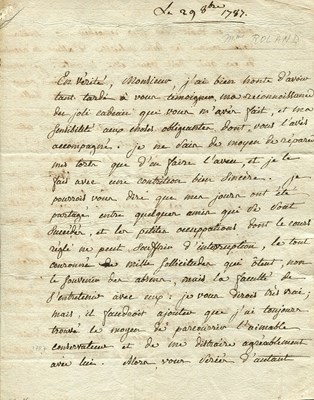 Le 29 8bre 1787.
Mme ROLAND
En vérité, Monsieur, j'ai bien honte d'avoir
tant tardé à vous témoigner ma reconnaissance
du joli cadeau que vous m'avés fait, et ma
sensibilité aux choses obligeantes dont vous l'avés
accompagné. je ne sais de moyen de réparer
mes torts que d'en faire l'aveu, et je le
fais avec une contrition bien sincère. Je
pourrois vous dire que mes jours ont été
partagés entre quelques amis qui se sont
succédés, et les petites occupations dont le cours
réglé ne peut souffrir d'interruption, le tout
couronné de mille sollicitudes qui ôtent non
le souvenir des absens, mais la faculté de
s'entretenir avec eux; je vous dirois très vrai;
mais, il faudroit ajouter que j'ai toujours
trouvé le moyen de parcourir l'aimable
conservateur et de me distraire agréablement
avec lui. Alors vous seriez d'autant